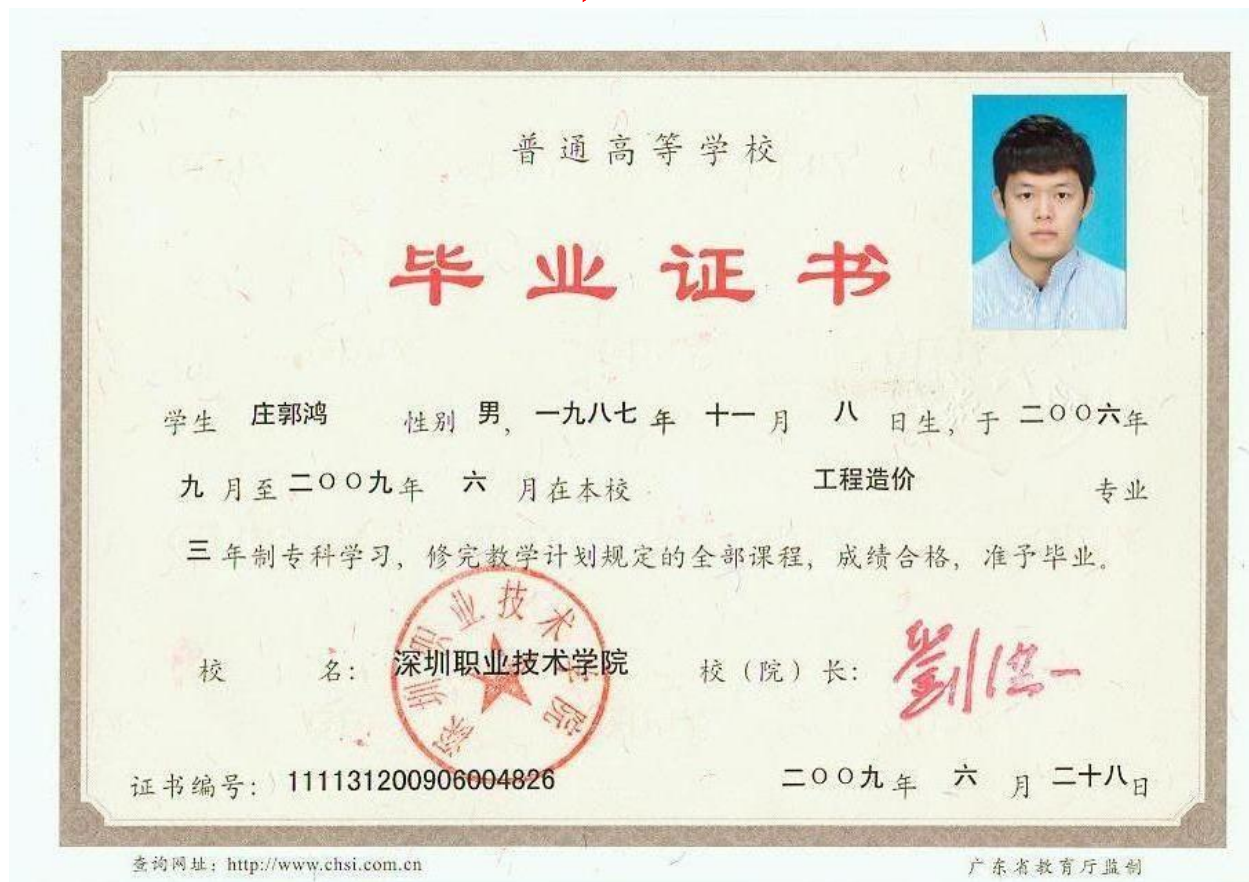 普通高等学校
毕业证书
学生 庄郭鸿 性别 男, 一九八七 年 十一 月 八 日生, 于 二〇〇六年
九 月至 二〇〇九年 六 月在本校 工程造价 专业
三 年制专科学习, 修完教学计划规定的全部课程, 成绩合格, 准予毕业。
深圳职业技术学院
校 名: 深圳职业技术学院 校(院)长:
证书编号: 111131200906004826 二〇〇九 年 六 月 二十八日
查询网址: http://www.chsi.com.cn 广东省教育厅监制